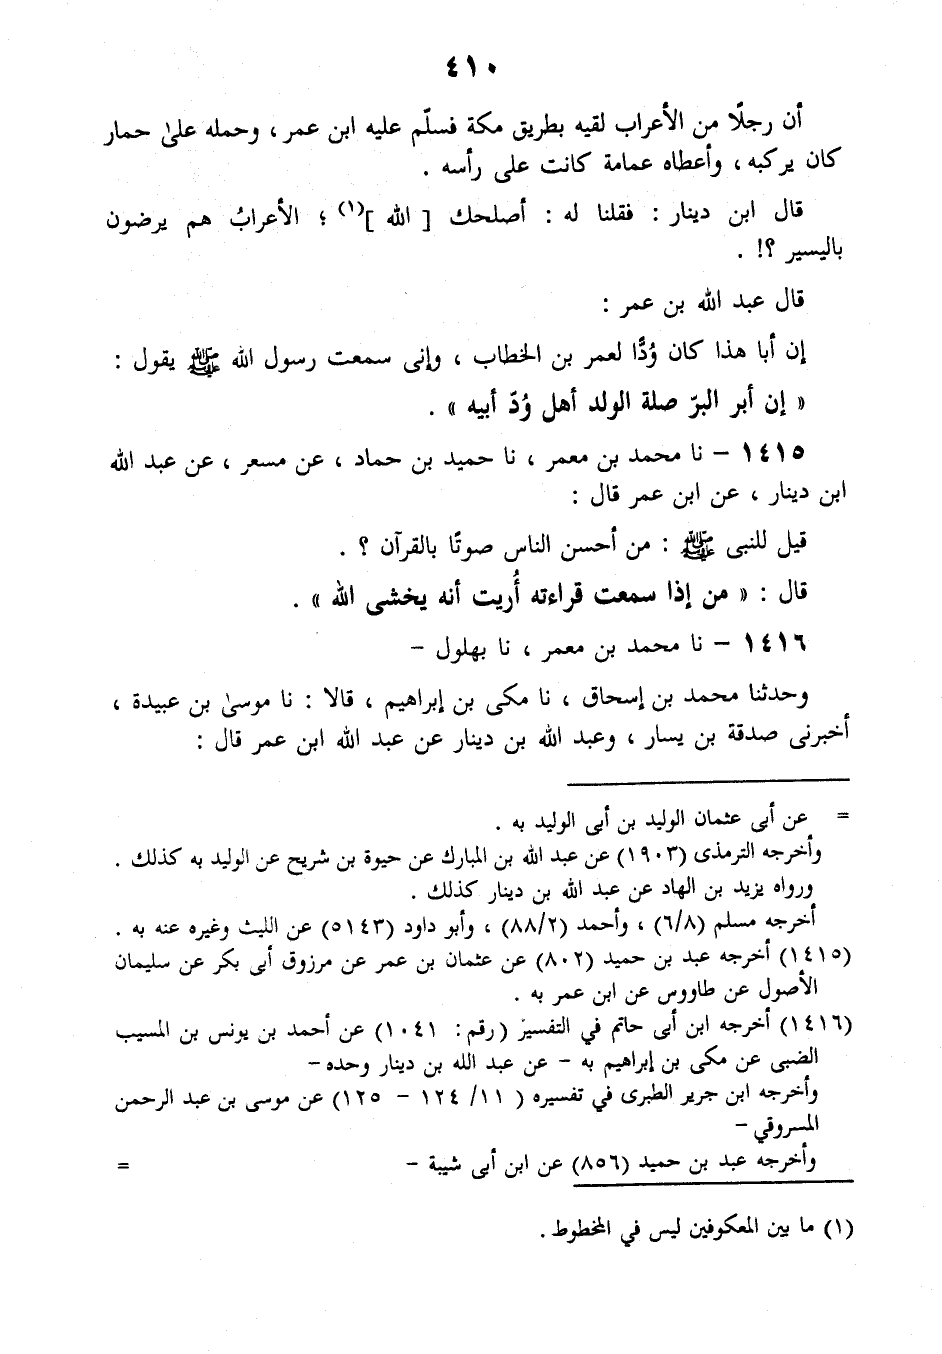 ٤١٠
أن رجلًا من الأعراب لقيه بطريق مكة فسلّم عليه ابن عمر ، وحمله علىٰ حمار
كان يركبه ، وأعطاه عمامة كانت على رأسه .
قال ابن دينار : فقلنا له : أصلحك [ الله ](١) ؛ الأعرابُ هم يرضون
باليسير ؟! .
قال عبد الله بن عمر :
إن أبا هذا كان وُدًّا لعمر بن الخطاب ، وإنى سمعت رسول الله ﷺ يقول :
« إن أبر البرّ صلة الولد أهل وُدّ أبيه » .
١٤١٥ – نا محمد بن معمر ، نا حميد بن حماد ، عن مسعر ، عن عبد الله
ابن دينار ، عن ابن عمر قال :
قيل للنبى ﷺ : من أحسن الناس صوتًا بالقرآن ؟ .
قال : « من إذا سمعت قراءته أُريت أنه يخشى الله » .
١٤١٦ – نا محمد بن معمر ، نا بهلول –
وحدثنا محمد بن إسحاق ، نا مكى بن إبراهيم ، قالا : نا موسىٰ بن عبيدة ،
أخبرنى صدقة بن يسار ، وعبد الله بن دينار عن عبد الله ابن عمر قال :
= عن أبى عثمان الوليد بن أبى الوليد به .
وأخرجه الترمذى (١٩٠٣) عن عبد الله بن المبارك عن حيوة بن شريح عن الوليد به كذلك .
ورواه يزيد بن الهاد عن عبد الله بن دينار كذلك .
أخرجه مسلم (٦/٨) ، وأحمد (٨٨/٢) ، وأبو داود (٥١٤٣) عن الليث وغيره عنه به .
(١٤١٥) أخرجه عبد بن حميد (٨٠٢) عن عثمان بن عمر عن مرزوق أبى بكر عن سليمان
الأصول عن طاووس عن ابن عمر به .
(١٤١٦) أخرجه ابن أبى حاتم في التفسير (رقم : ١٠٤١) عن أحمد بن يونس بن المسيب
الضبى عن مكى بن إبراهيم به – عن عبد الله بن دينار وحده–
وأخرجه ابن جرير الطبرى في تفسيره ( ١١/ ١٢٤ – ١٢٥) عن موسى بن عبد الرحمن
المسروقي –
وأخرجه عبد بن حميد (٨٥٦) عن ابن أبى شيبة – =
(١) ما بين المعكوفين ليس في المخطوط .